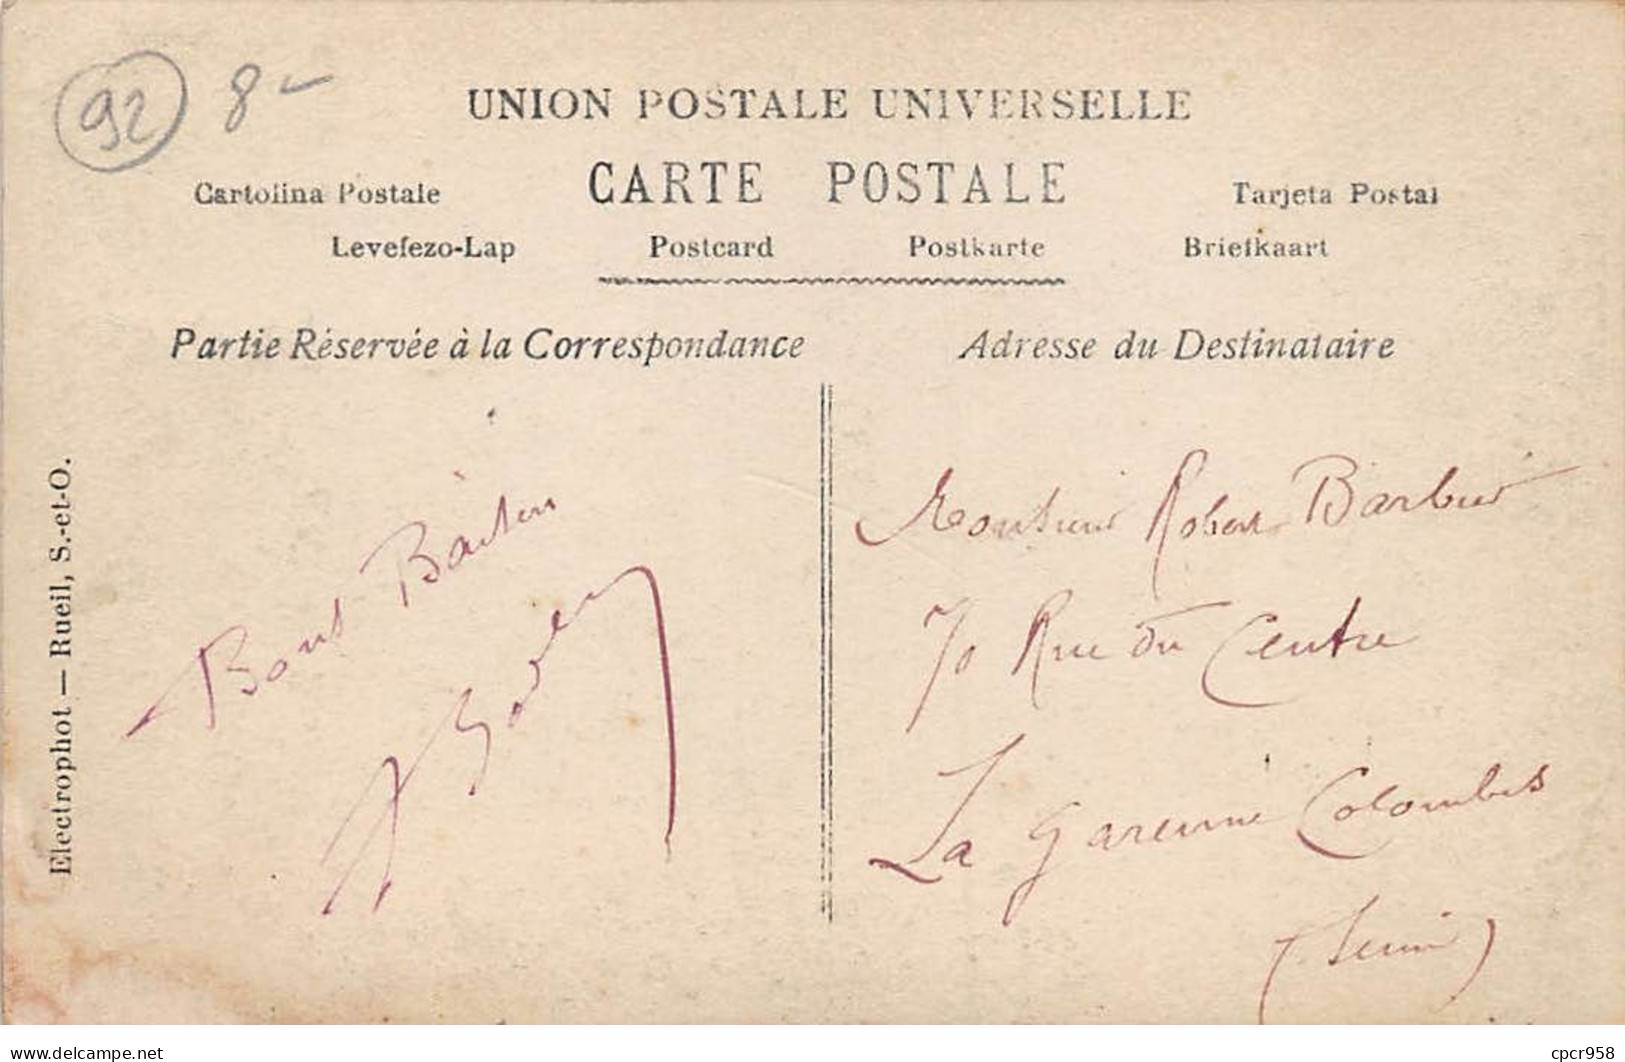 92 8-
UNION POSTALE UNIVERSELLE
CARTE POSTALE
Cartolina Postale Tarjeta Postal
Levelezo-Lap Postcard Postkarte Briefkaart
Partie Réservée à la Correspondance Adresse du Destinataire
Electrophot — Rueil, S.-et-O.
Bons
Monsieur Robert Barbier
70 Rue du Centre
La Garenne Colombes
(Seine)
delcampe.net
cpcr958